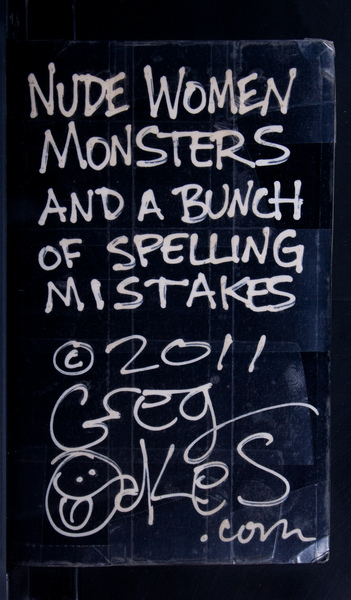 NUDE WOMEN
MONSTERS
AND A BUNCH
OF SPELLING
MISTAKES
© 2011
Greg
Oakes
.com